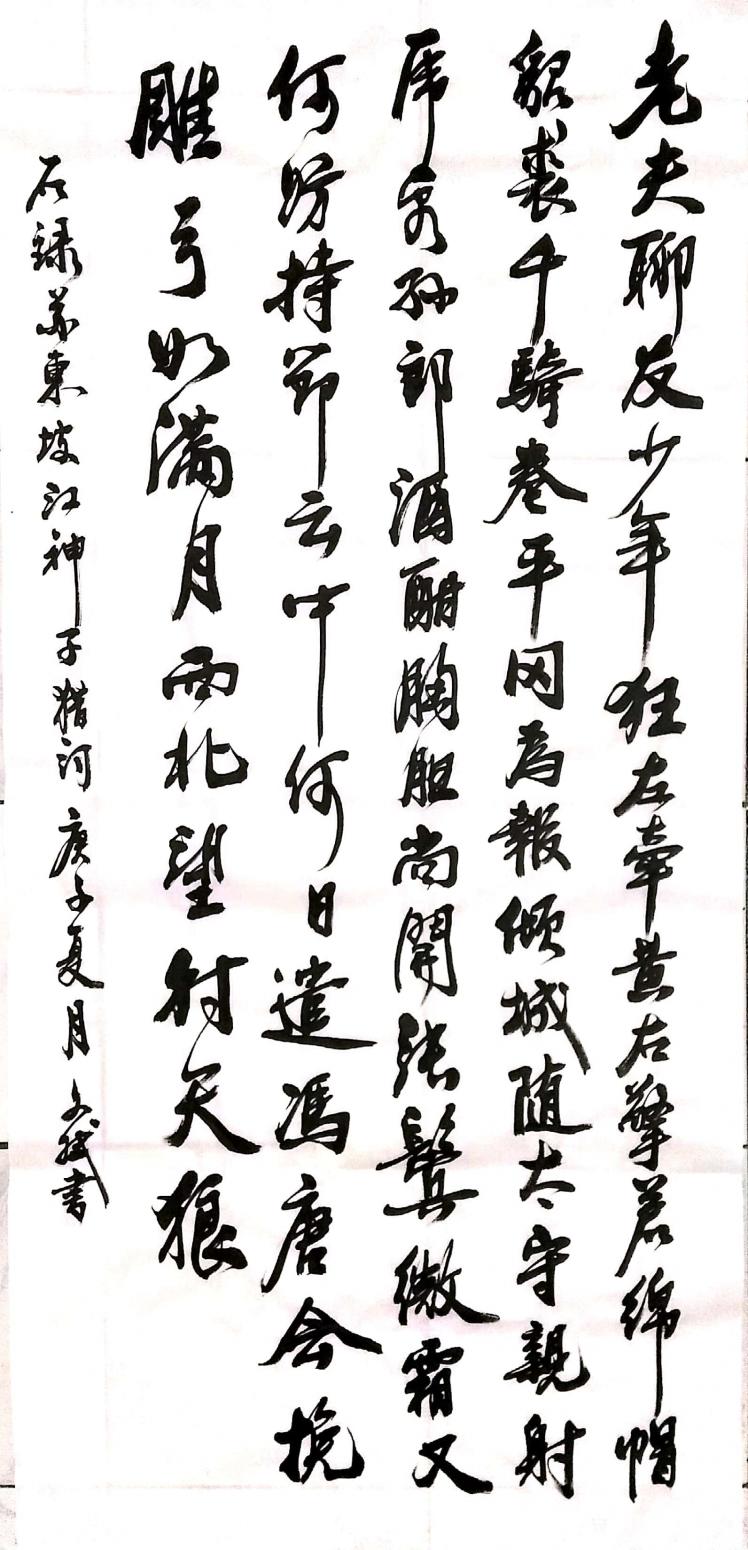 老夫聊发少年狂左牵黄右擎苍绵帽
貂裘千骑卷平冈为報倾城随太守親射
虎看孙郎酒酣胸胆尚開张鬓微霜又
何妨持节云中何日遣馮唐会挽
雕弓如满月西北望射天狼
右録苏东坡江神子猎词庚子夏月文斌书